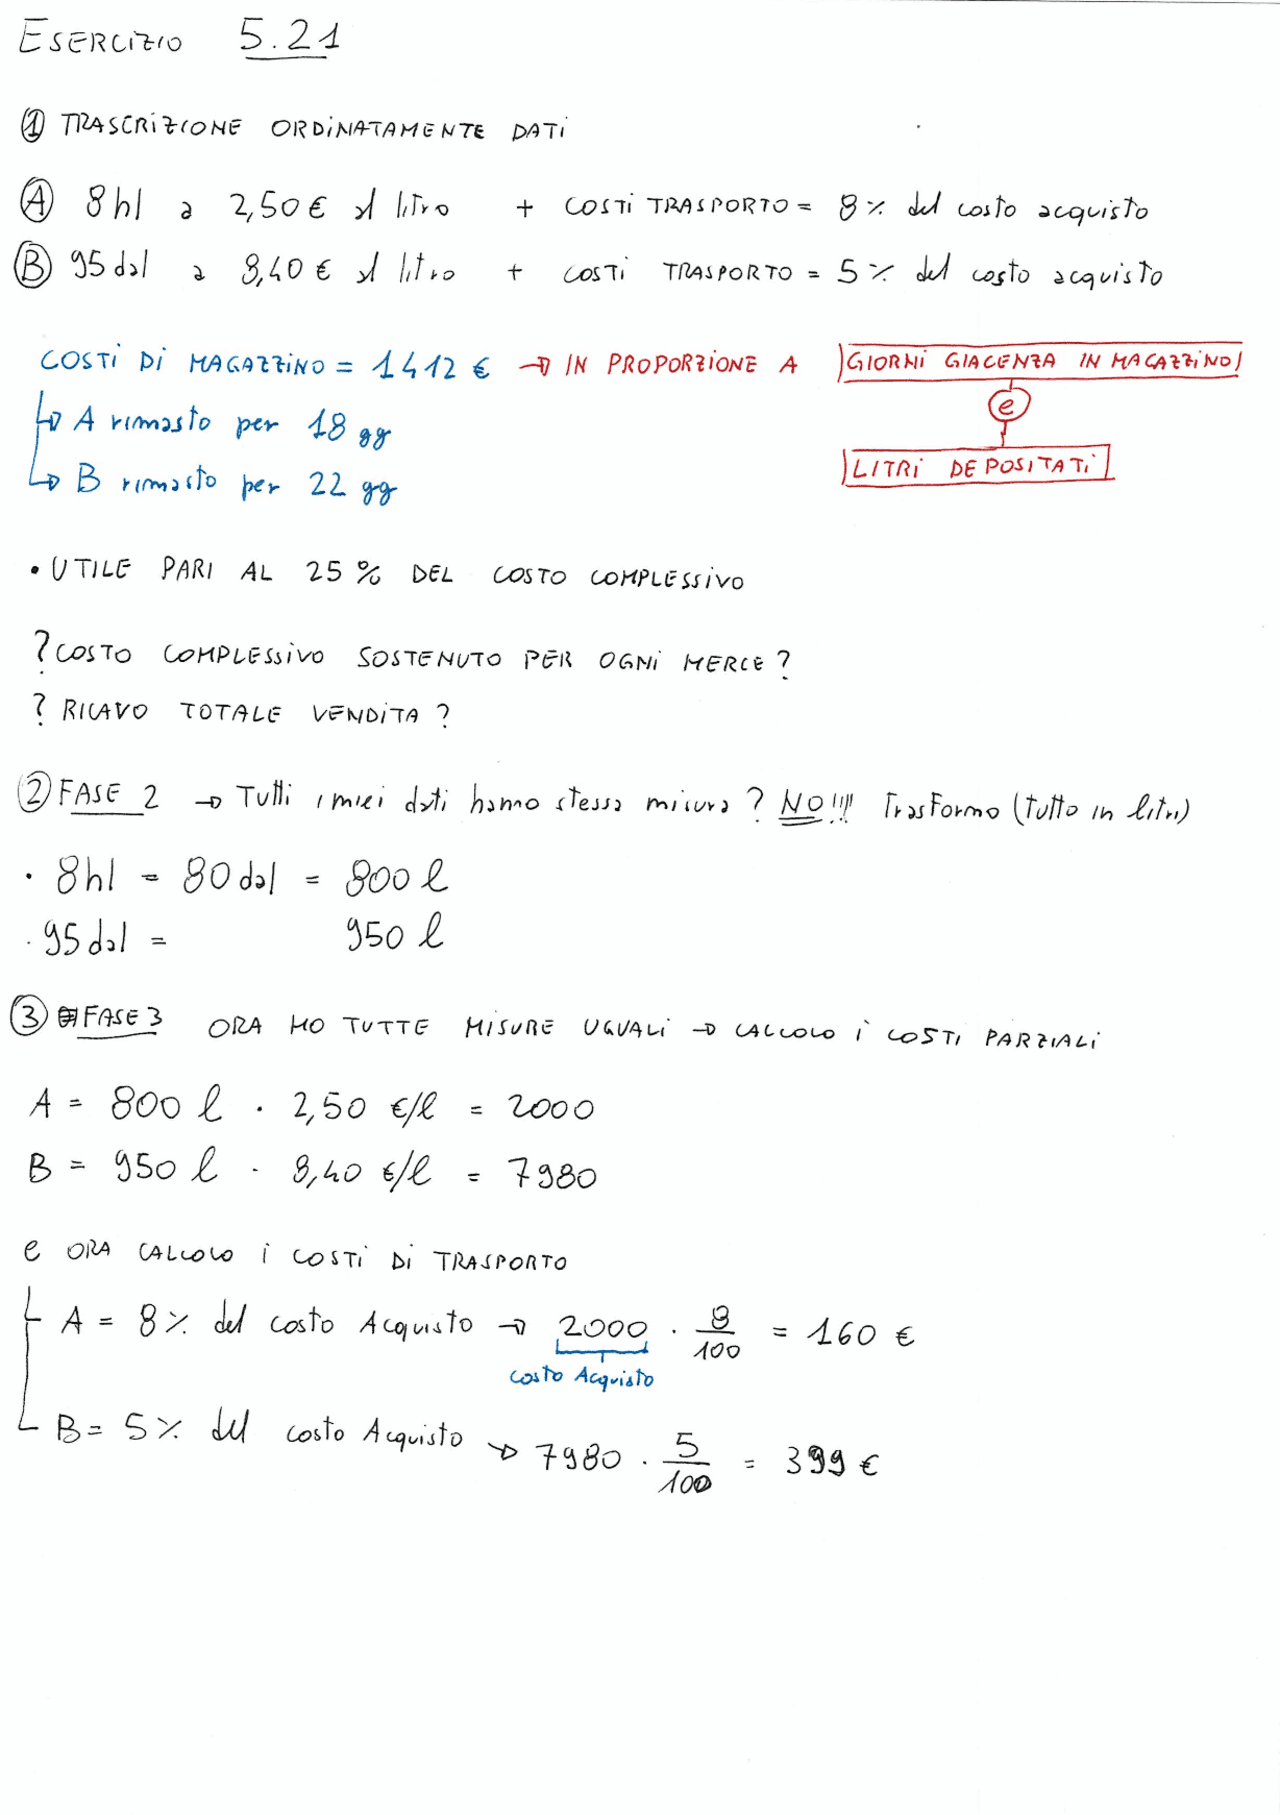 ESERCIZIO 5.21
① TRASCRIZIONE ORDINATAMENTE DATI
Ⓐ 8 hl a 2,50 € al litro + COSTI TRASPORTO = 8 % del costo acquisto
Ⓑ 95 dal a 8,40 € al litro + COSTI TRASPORTO = 5 % del costo acquisto
COSTI DI MAGAZZINO = 1412 € → IN PROPORZIONE A GIORNI GIACENZA IN MAGAZZINO
e
LITRI DEPOSITATI
↳ A rimasto per 18 gg
↳ B rimasto per 22 gg
• UTILE PARI AL 25 % DEL COSTO COMPLESSIVO
? COSTO COMPLESSIVO SOSTENUTO PER OGNI MERCE ?
? RICAVO TOTALE VENDITA ?
② FASE 2 → Tutti i miei dati hanno stessa misura ? NO!!!! Trasformo (tutto in litri)
• 8 hl = 80 dal = 800 l
• 95 dal = 950 l
③ FASE 3 ORA HO TUTTE MISURE UGUALI → CALCOLO I COSTI PARZIALI
A = 800 l · 2,50 €/l = 2000
B = 950 l · 8,40 €/l = 7980
e ORA CALCOLO I COSTI DI TRASPORTO
A = 8 % del costo Acquisto → 2000 · 8/100 = 160 €
costo Acquisto
B = 5 % del costo Acquisto → 7980 · 5/100 = 399 €